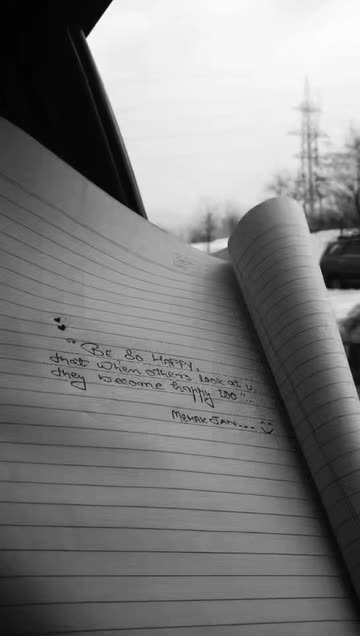 "BE SO HAPPY,
that when others look at u,
they become happy too"...
MEHAK JAN...